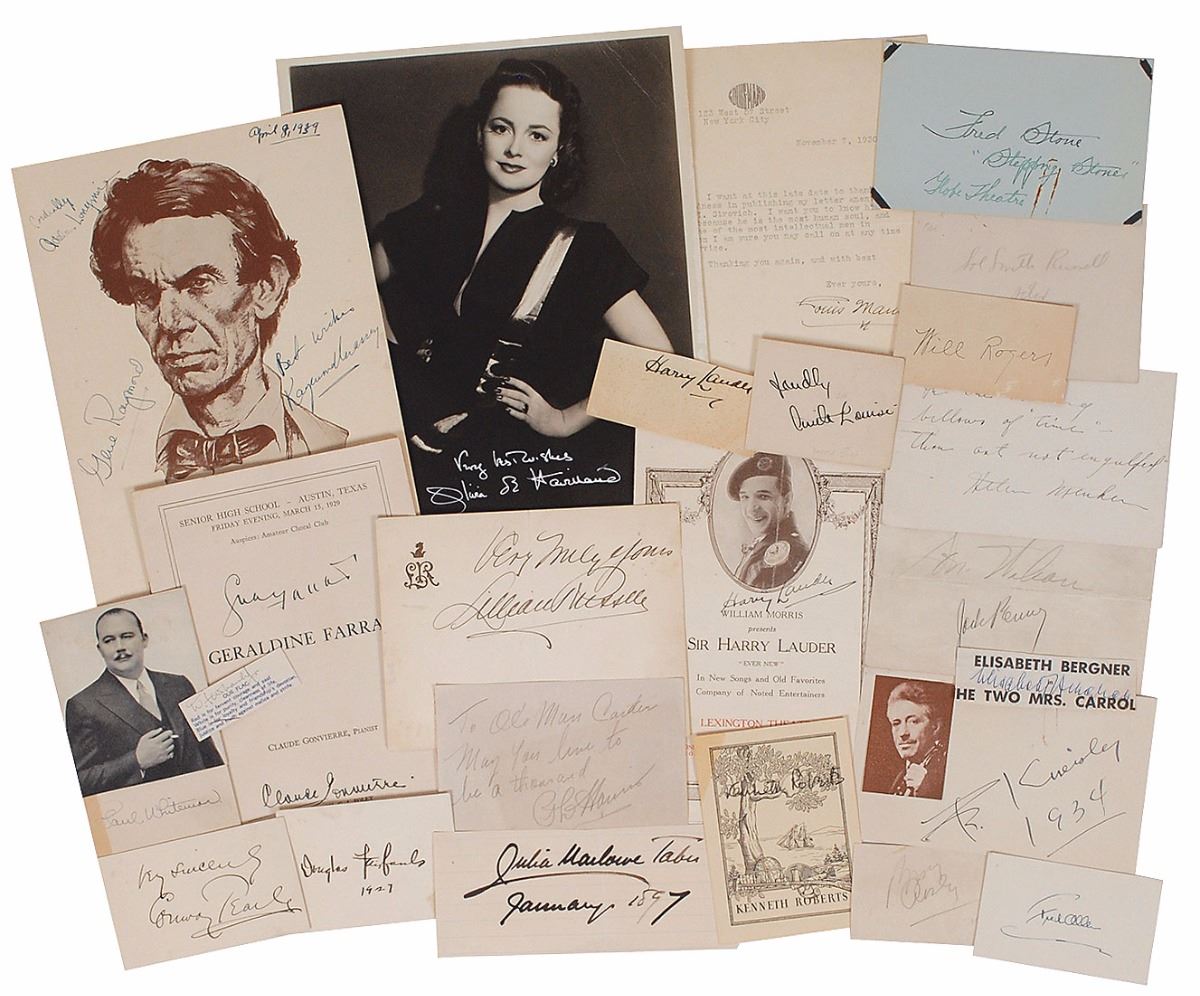 April 8, 1939
Cordially
Gene Raymond
Best Wishes
Raymond Massey
Very best wishes
Olivia de Havilland
123 West 57 Street
New York City
November 7, 1930
I want at this late date to than
ness in publishing my letter anen
. Sirovich. I want you to know h
because he is the most human soul, and
e of the most intellectual men in
I am sure you may call on at any time
vice.
Thanking you again, and with best
Ever yours,
Louis Mann
Fred Stone
"Stepping Stones"
Globe Theatre
Sol Smith Russell
Will Rogers
Harry Lauder
Anita Louise
billows of "time" -
thou art not engulfed"
Helen Menken
Don Wilson
Jack Benny
SENIOR HIGH SCHOOL - AUSTIN, TEXAS
FRIDAY EVENING, MARCH 15, 1929
Auspices: Amateur Choral Club
GERALDINE FARRA
CLAUDE GONVIERRE, PIANIST
Claude Gonvierre
LR
Very Truly Yours
Lillian Russell
Harry Lauder
WILLIAM MORRIS
presents
SIR HARRY LAUDER
"EVER NEW"
In New Songs and Old Favorites
Company of Noted Entertainers
LEXINGTON THEAT
OUR FLAG
Red for fervent courage and zeal
White for purity, cleanness of life
Paul Whiteman
To Ole Man Carder
May You live to
be a thousand
ELISABETH BERGNER
Elisabeth Bergner
HE TWO MRS. CARROL
Fr. Kreisler
1934
Kenneth Roberts
KENNETH ROBERTS
Very Sincerely
Conway Tearle
Douglas Fairbanks
1927
Julia Marlowe Taber
January, 1897
Fred Allen